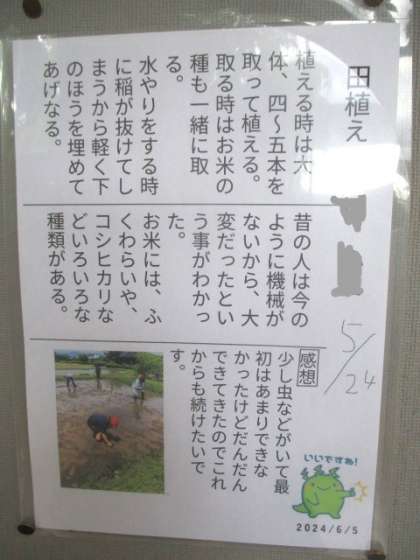 田植え
植える時は大
体、四〜五本を
取って植える。
取る時はお米の
種も一緒に取
る。
水やりをする時
に稲が抜けてし
まうから軽く下
のほうを埋めて
あげなる。
昔の人は今の
ように機械が
ないから、大
変だったとい
う事がわかっ
た。
お米には、ふ
くわらいや、
コシヒカリな
どいろいろな
種類がある。
5/24
感想
少し虫などがいて最
初はあまりできな
かったけどだんだん
できてきたのでこれ
からも続けたいで
す。
いいですね!
2024/6/5